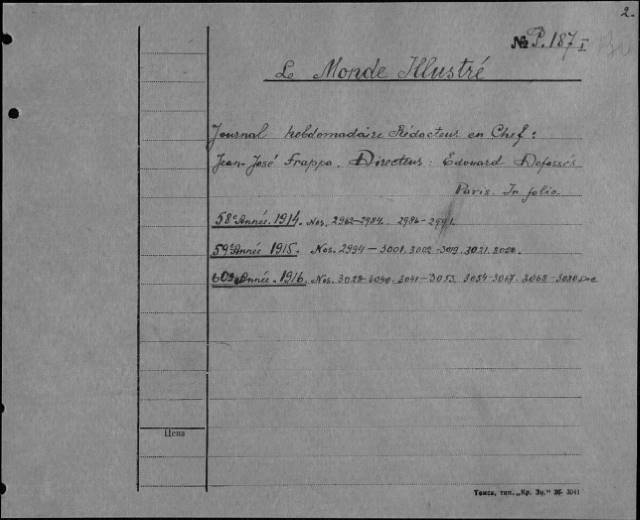 2.
№ P. 187 I
Le Monde Illustré
Journal hebdomadaire Rédacteur en Chef:
Jean-José Frappa. Directeur: Edouard Defossés
Paris. In folio.
58e Année. 1914. Nos. 2962-2984. 2986-2991.
59e Année 1915. Nos. 2994-3001. 3002-3019. 3021.
60e Année. 1916. Nos. 3041-3053. 3054-3067. 3068-
Цена
Томск, тип. „Кр. Зн."